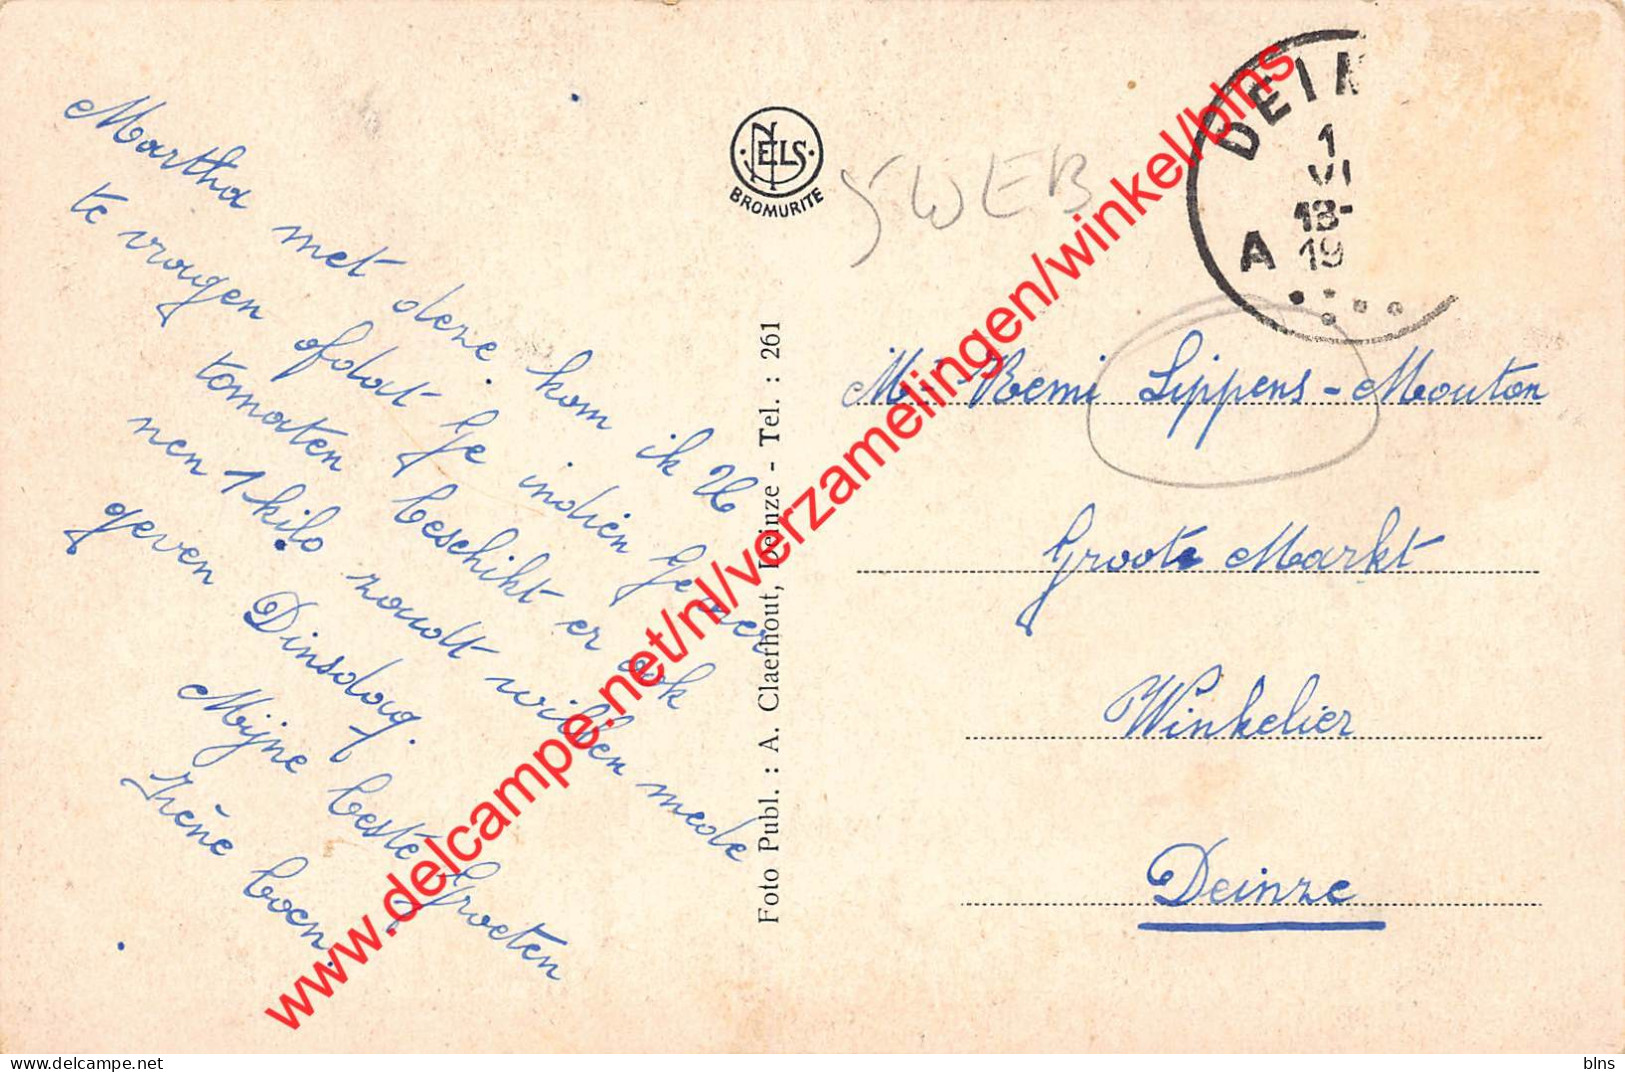 Martha met deze kom ik U
te vragen ofdat Ge indien Ge over
tomaten beschikt er ook
nen 1 kilo zoudt willen mede
geven Dinsdag.
Mijne beste Groeten
Irène
NELS
BROMURITE
SWEB
Foto Publ. : A. Claerhout, Deinze - Tel. : 261
DEIN
1
VI
13-
19
A
Mr Remi Lippens - Mouton
Groote Markt
Winkelier
Deinze
www.delcampe.net/nl/verzamelingen/winkel/blns
Delcampe.net
blns